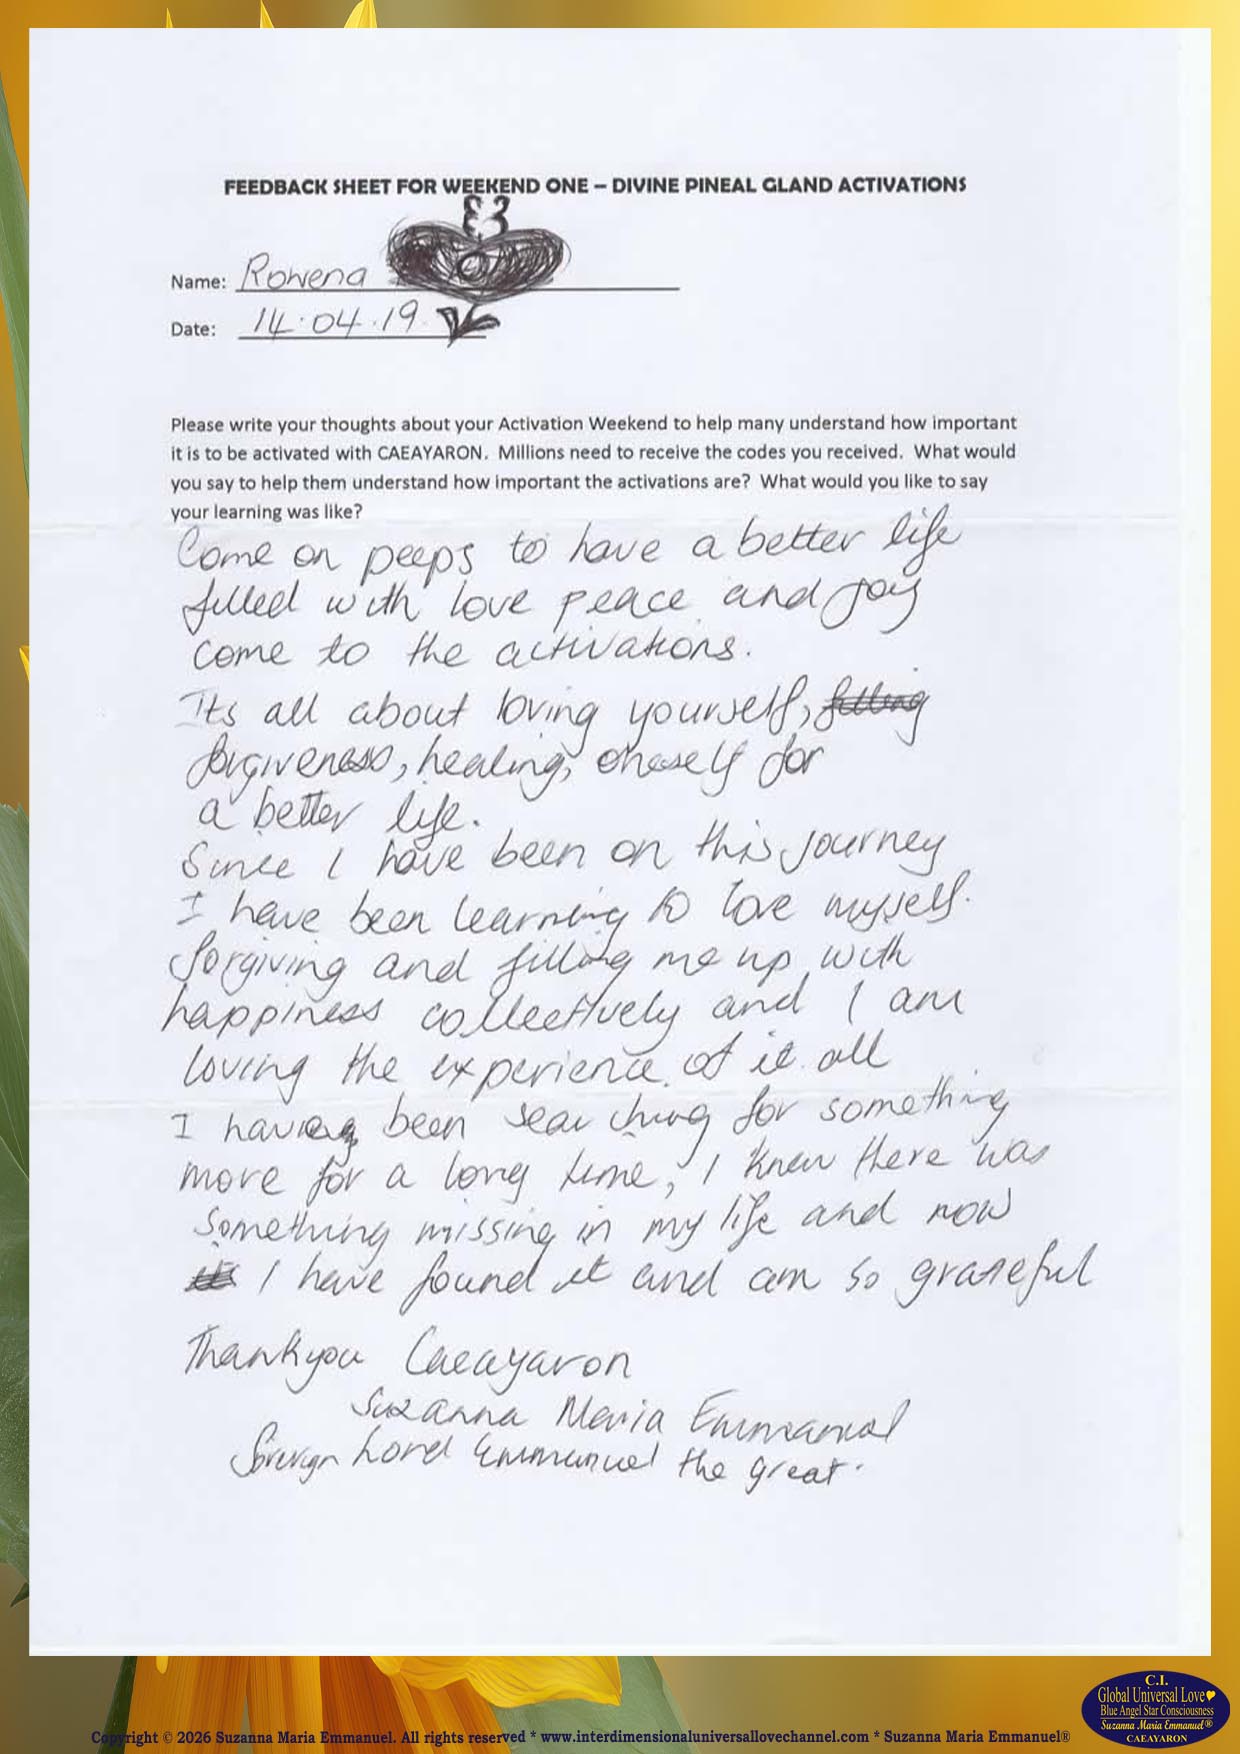 FEEDBACK SHEET FOR WEEKEND ONE – DIVINE PINEAL GLAND ACTIVATIONS
Name: Rowena
Date: 14.04.19
Please write your thoughts about your Activation Weekend to help many understand how important
it is to be activated with CAEAYARON. Millions need to receive the codes you received. What would
you say to help them understand how important the activations are? What would you like to say
your learning was like?
Come on peeps to have a better life
filled with love peace and joy
come to the activations.
Its all about loving yourself, filling
forgiveness, healing, oneself for
a better life.
Since I have been on this journey
I have been learning to love myself.
forgiving and filling me up with
happiness collectively and I am
loving the experience of it all
I having been searching for something
more for a long time, I knew there was
something missing in my life and now
I have found it and am so grateful
Thankyou Caeayaron
Suzanna Maria Emmanuel
Soverign Lord Emmanuel the great.
C.I.
Global Universal Love
Blue Angel Star Consciousness
Suzanna Maria Emmanuel®
CAEAYARON
Copyright © 2026 Suzanna Maria Emmanuel. All rights reserved * www.interdimensionaluniversallovechannel.com * Suzanna Maria Emmanuel®